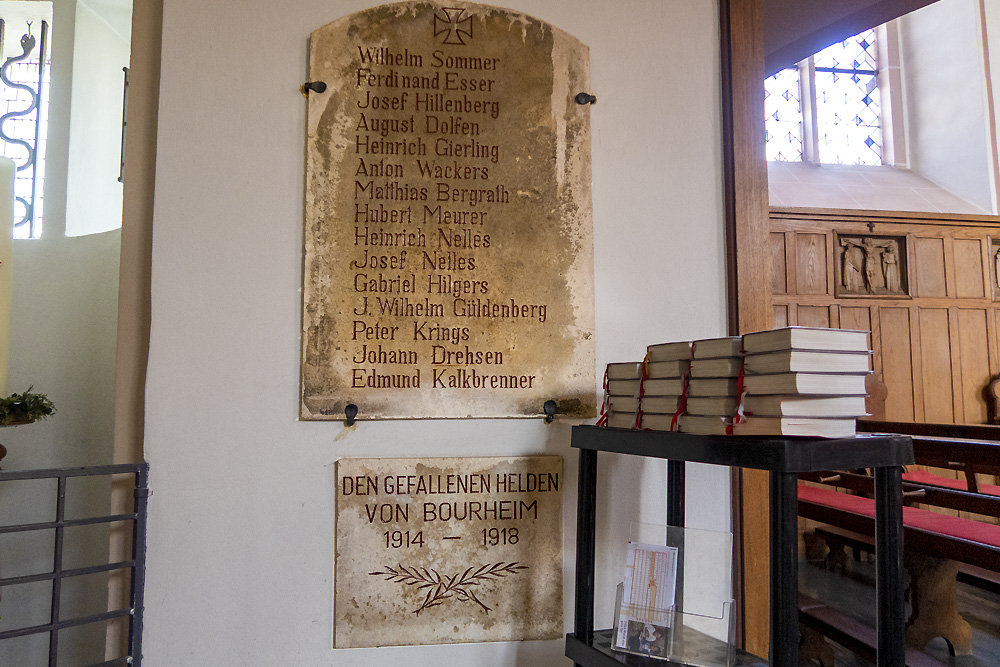 Wilhelm Sommer
Ferdinand Esser
Josef Hillenberg
August Dolfen
Heinrich Gierling
Anton Wackers
Matthias Bergrath
Hubert Meurer
Heinrich Nelles
Josef Nelles
Gabriel Hilgers
J. Wilhelm Güldenberg
Peter Krings
Johann Drehsen
Edmund Kalkbrenner
DEN GEFALLENEN HELDEN
VON BOURHEIM
1914 – 1918